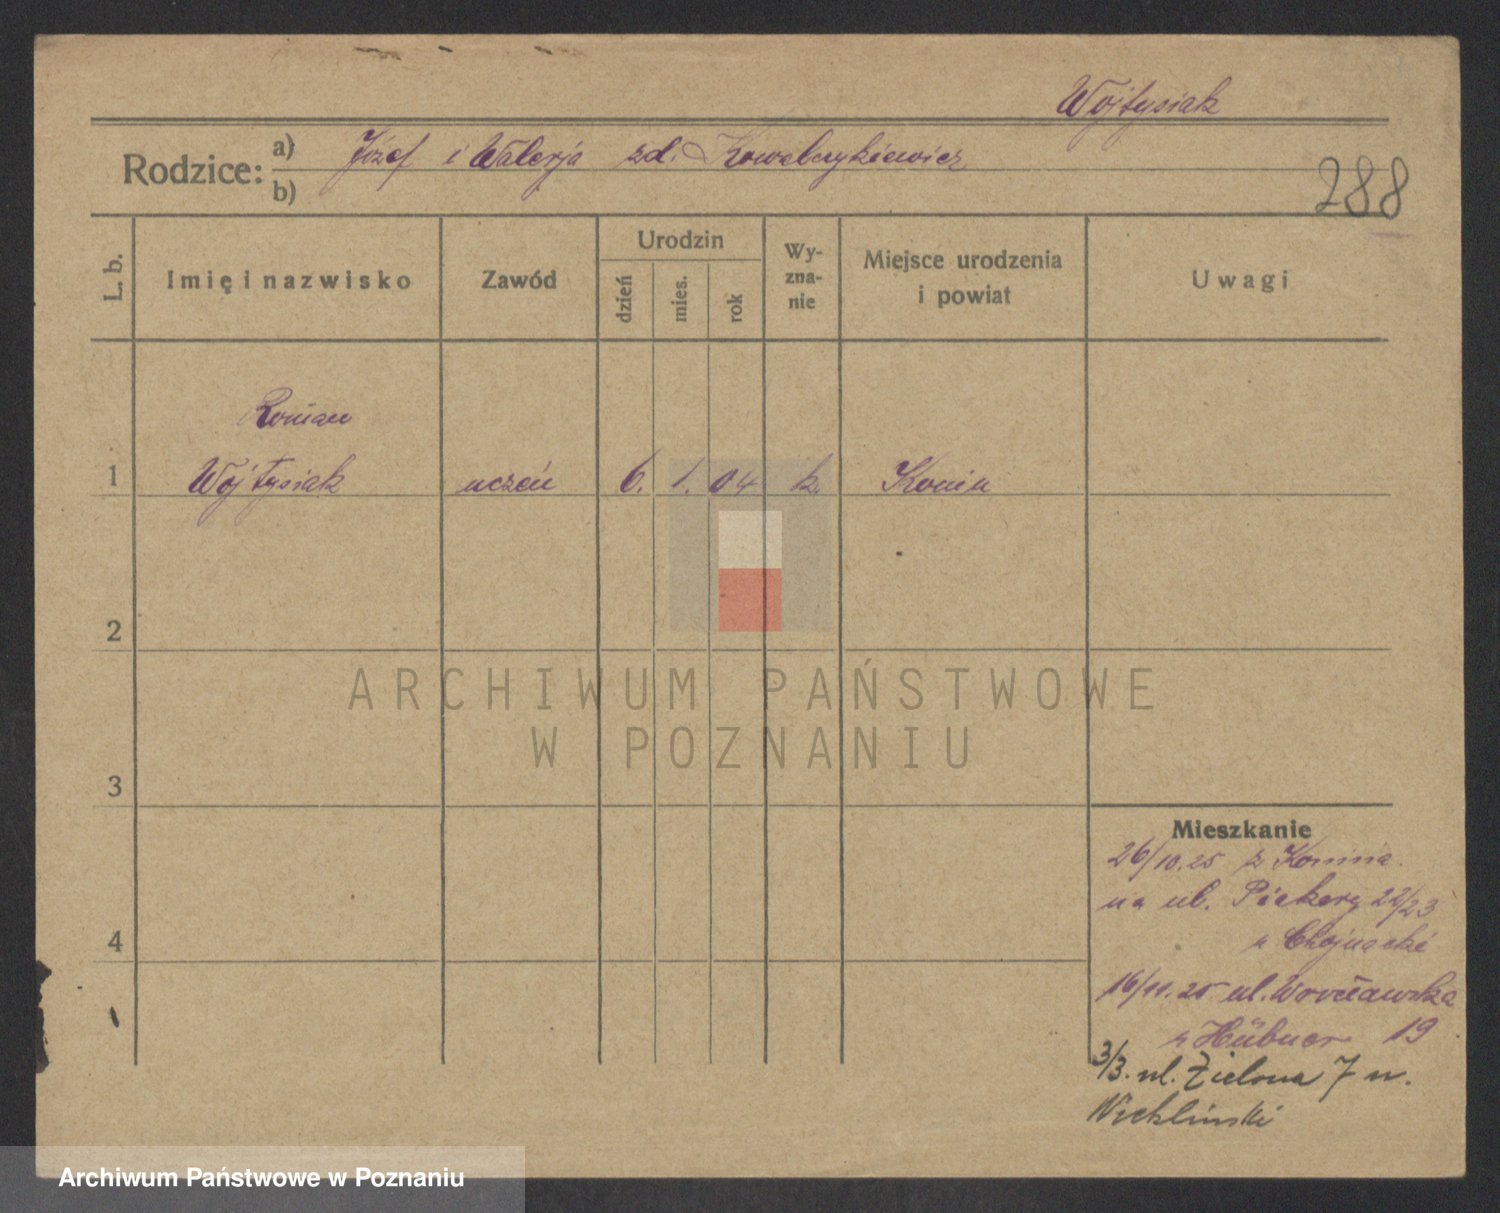 Wojtysiak
Rodzice: a) Józef i Walerja zd. Kowalczykiewicz
b)
288
L. b. Imię i nazwisko Zawód Urodzin dzień mies. rok Wy-zna-nie Miejsce urodzenia i powiat Uwagi
Roman
1 Wojtysiak uczeń 6. 1. 04 k. Konin
2
3
4
Mieszkanie
26/10.25 z Konina
na ul. Piekary 22/23
u Chojnacki
16/11.25 ul. Wrocławska
u Hübner 19
3/3. ul. Zielona 7 u.
Nichliński
ARCHIWUM PAŃSTWOWE
W POZNANIU
Archiwum Państwowe w Poznaniu